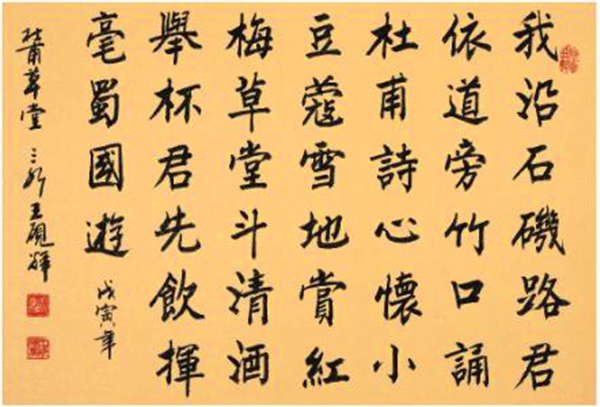 我沿石磯路君
依道旁竹口誦
杜甫詩心懷小
豆蔻雪地賞紅
梅草堂斗清酒
舉杯君先飲揮
毫蜀國遊
戊寅年
杜甫草堂 王